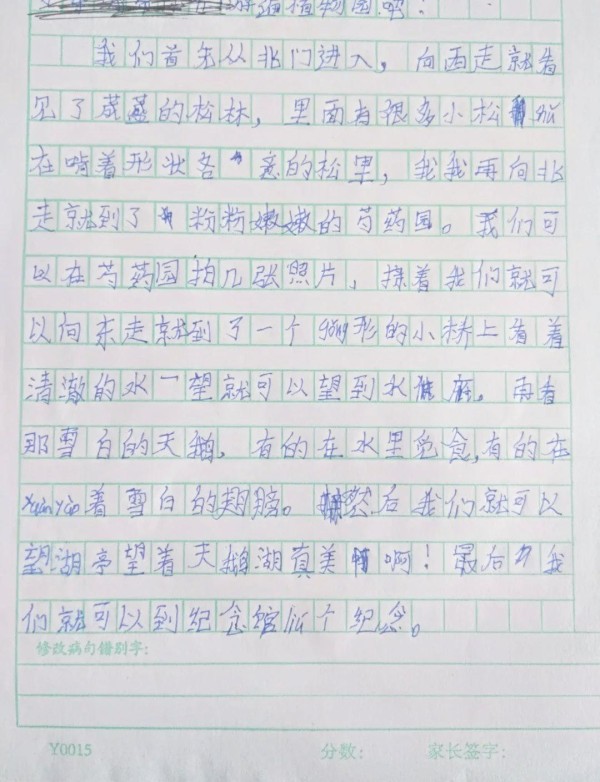 游植物园吧!
我们首先从北门进入，向西走就看
见了茂盛的松林，里面有很多小松
在啃着形状各 意的松果，我我再向北
走就到了 粉粉嫩嫩的芍药园。我们可
以在芍药园拍几张照片，接着我们就可
以向东走就到了一个 形的小桥上看着
清澈的水一望就可以望到水 底。再看
那雪白的天鹅，有的在水里觅食,有的在
着雪白的翅膀。 然后我们就可以
望湖亭望着天鹅湖真美 啊！最后 我
们就可以到纪念馆 个纪念。
修改病句错别字：
Y0015 分数： 家长签字：